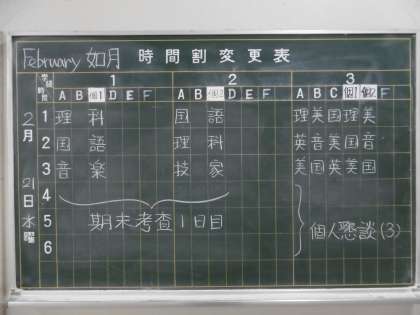 February 如月 時間割変更表
学級 1 2 3
時限 A B 個1 D E F A B 個2 D E F A B C 個1 個2 F
2月21日水曜
1 理 科 国 語 理 美 国 理 美
2 国 語 理 科 英 音 美 国 音
3 音 楽 技 家 美 国 英 美 国
4
5 期末考査1日目 個人懇談(3)
6